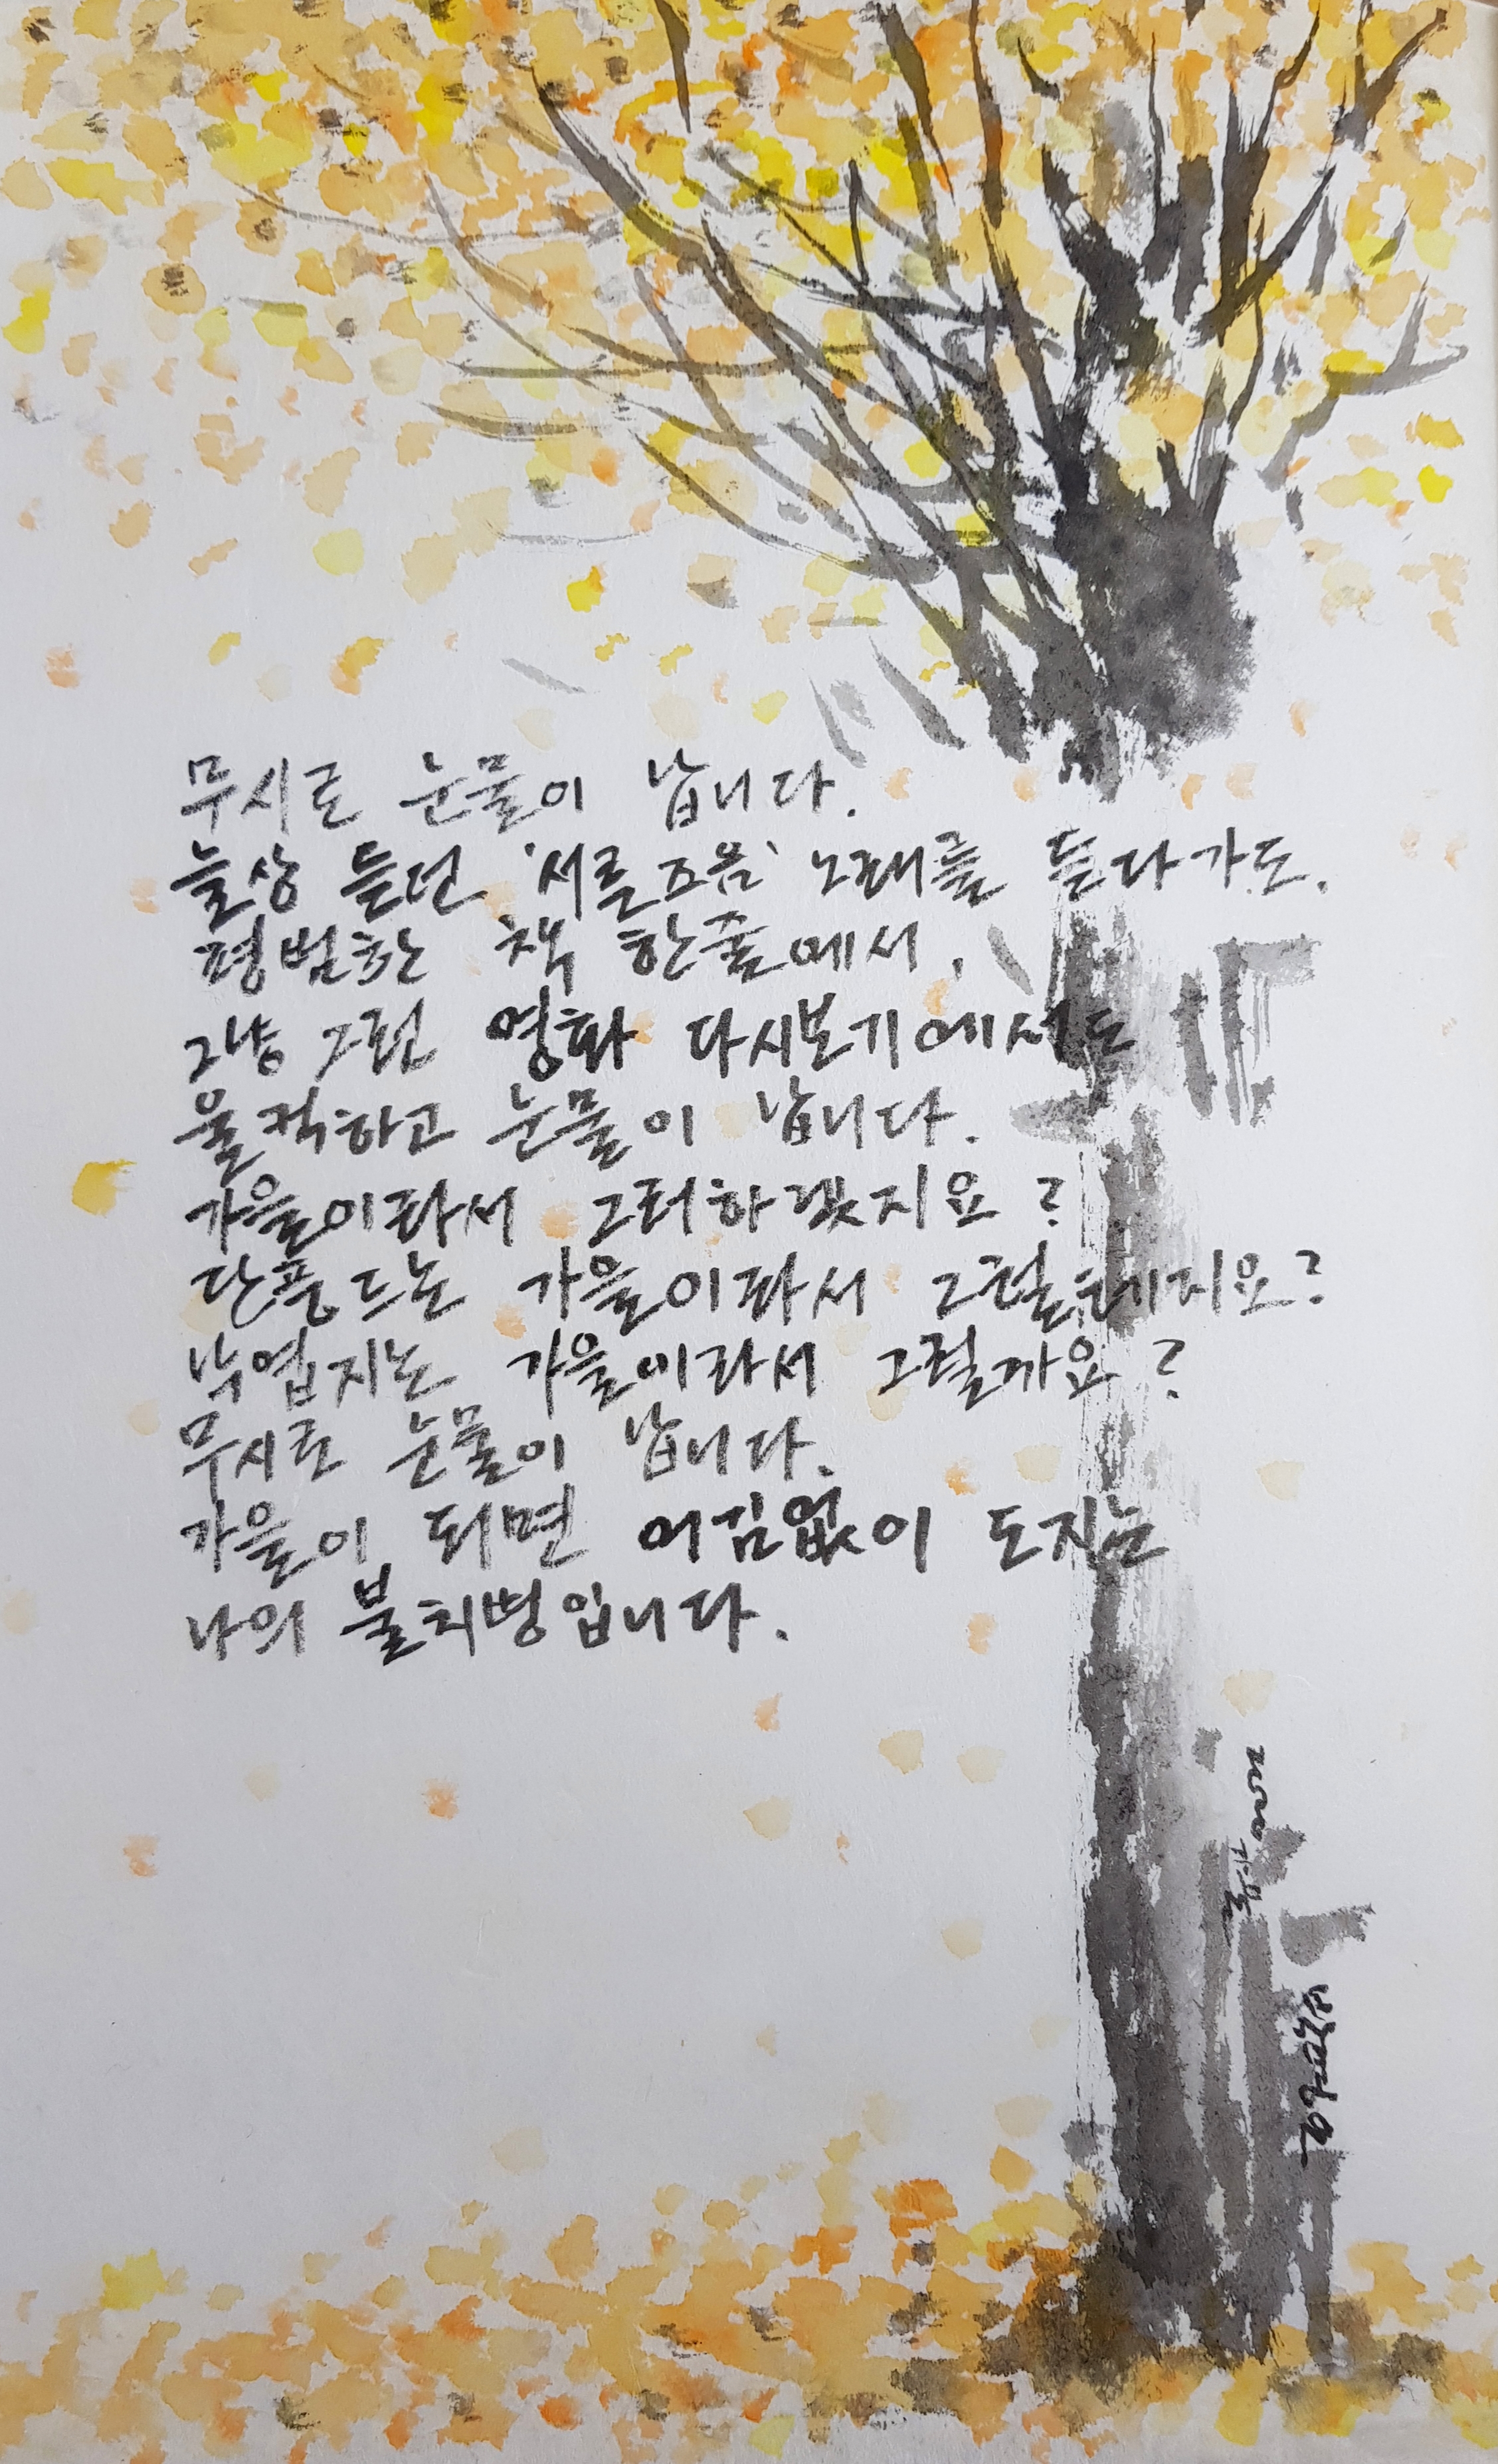 무시로 눈물이 납니다.
늘상 듣던 '서른즈음' 노래를 듣다가도.
평범한 책 한줄에서.
그냥 그런 영화 다시보기에서도
울컥하고 눈물이 납니다.
가을이라서 그러하겠지요?
단풍드는 가을이라서 그럴테지요?
낙엽지는 가을이라서 그럴까요?
무시로 눈물이 납니다.
가을이 되면 어김없이 도지는
나의 불치병입니다.